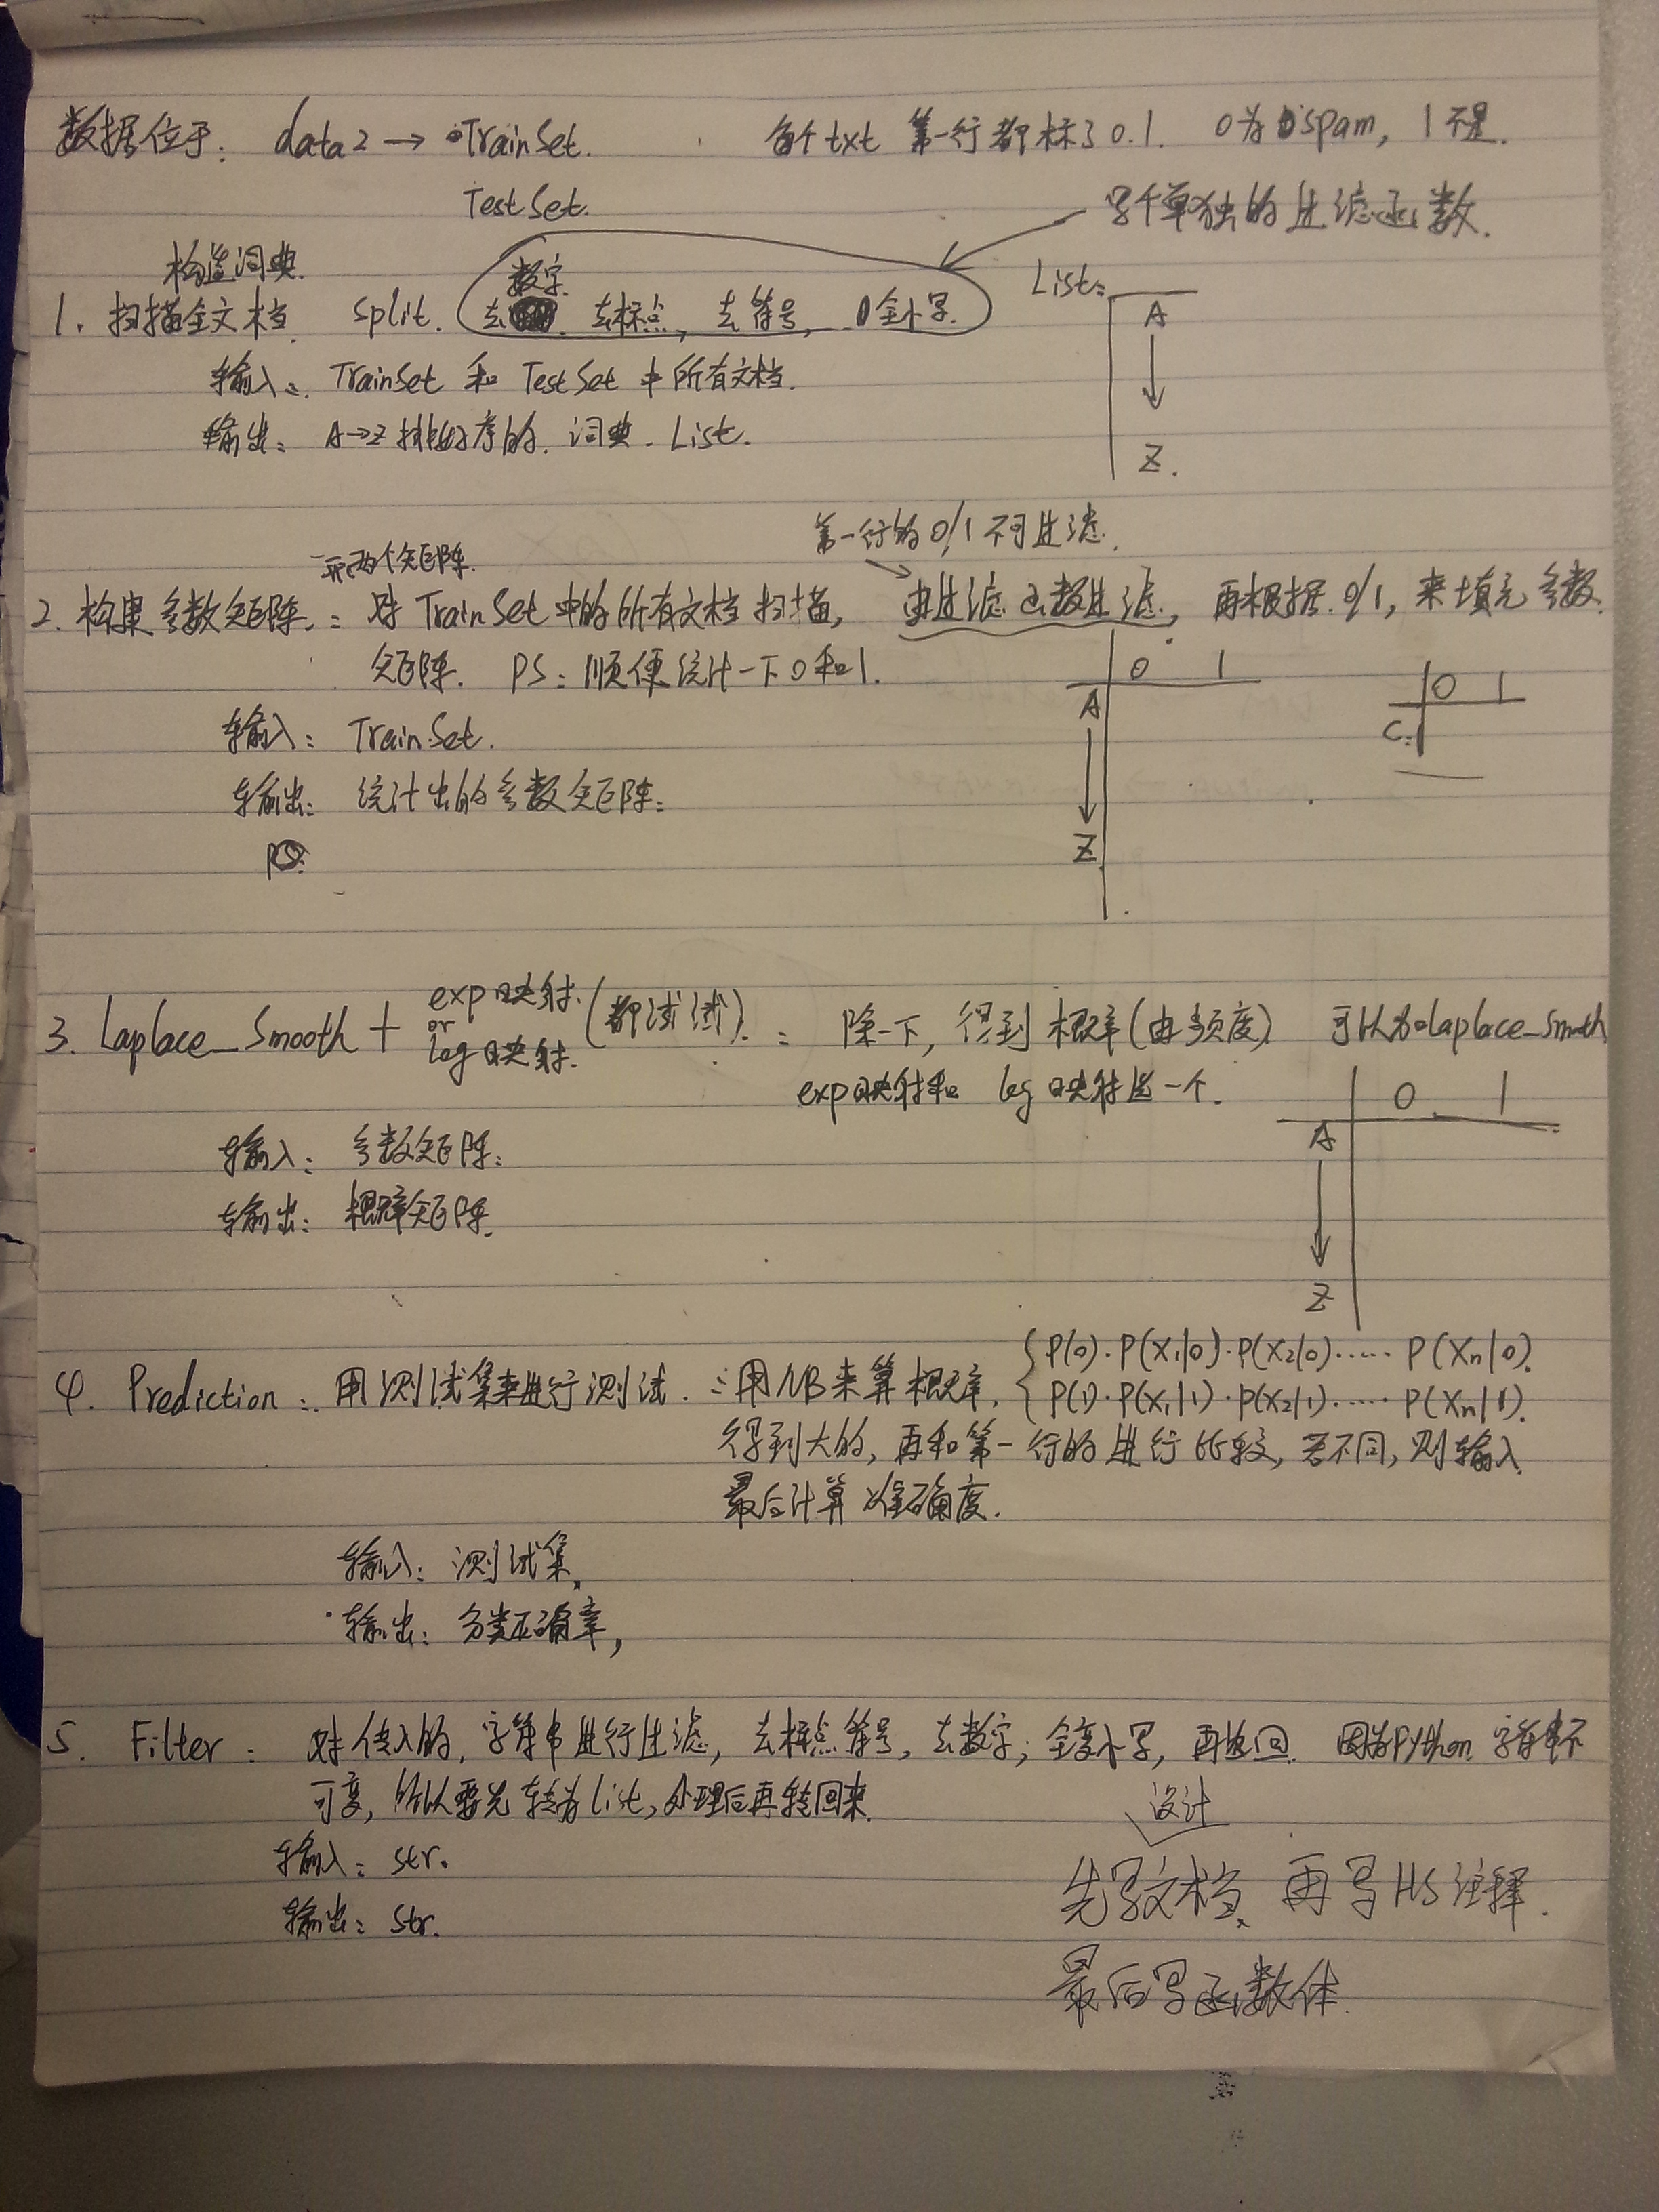 数据位于: data2 → TrainSet. 每个txt 第一行都标了0.1. 0为spam, 1不是.
TestSet. 写个单独的过滤函数.
构造词典.
数字.
1. 扫描全文档. split. 去 去标点, 去符号, 全小写. List:
A
输入: TrainSet 和 TestSet 中所有文档.
输出: A→Z排好序的. 词典. List.
Z.
第一行的0/1不可过滤.
开两个矩阵.
2. 构建参数矩阵: 对 TrainSet 中的所有文档扫描, 由过滤函数过滤, 再根据0/1, 来填充参数
矩阵. PS: 顺便统计一下0和1. 0 1
0 1
A
C:
输入: TrainSet.
输出: 统计出的参数矩阵.
Z
exp映射.
3. Laplace_Smooth + or (都试试). : 除一下, 得到概率(由频度) 可以为Laplace_Smooth
log映射.
exp映射和 log映射选一个.
0 1
A
输入: 参数矩阵.
输出: 概率矩阵.
Z
P(0)·P(X1|0)·P(X2|0)····· P(Xn|0).
4. Prediction: 用测试集来进行测试. 用NB来算概率. P(1)·P(X1|1)·P(X2|1)····· P(Xn|1).
得到大的, 再和第一行的进行比较, 若不同, 则输入.
最后计算准确度.
输入: 测试集.
输出: 分类正确率,
5. Filter: 对传入的, 字符串进行过滤, 去标点符号, 去数字, 全变小写, 再返回. 因为Python 字符串不
可变, 所以要先转为list, 处理后再转回来.
设计
输入: str.
先写文档, 再写HS注释.
输出: str.
最后写函数体.